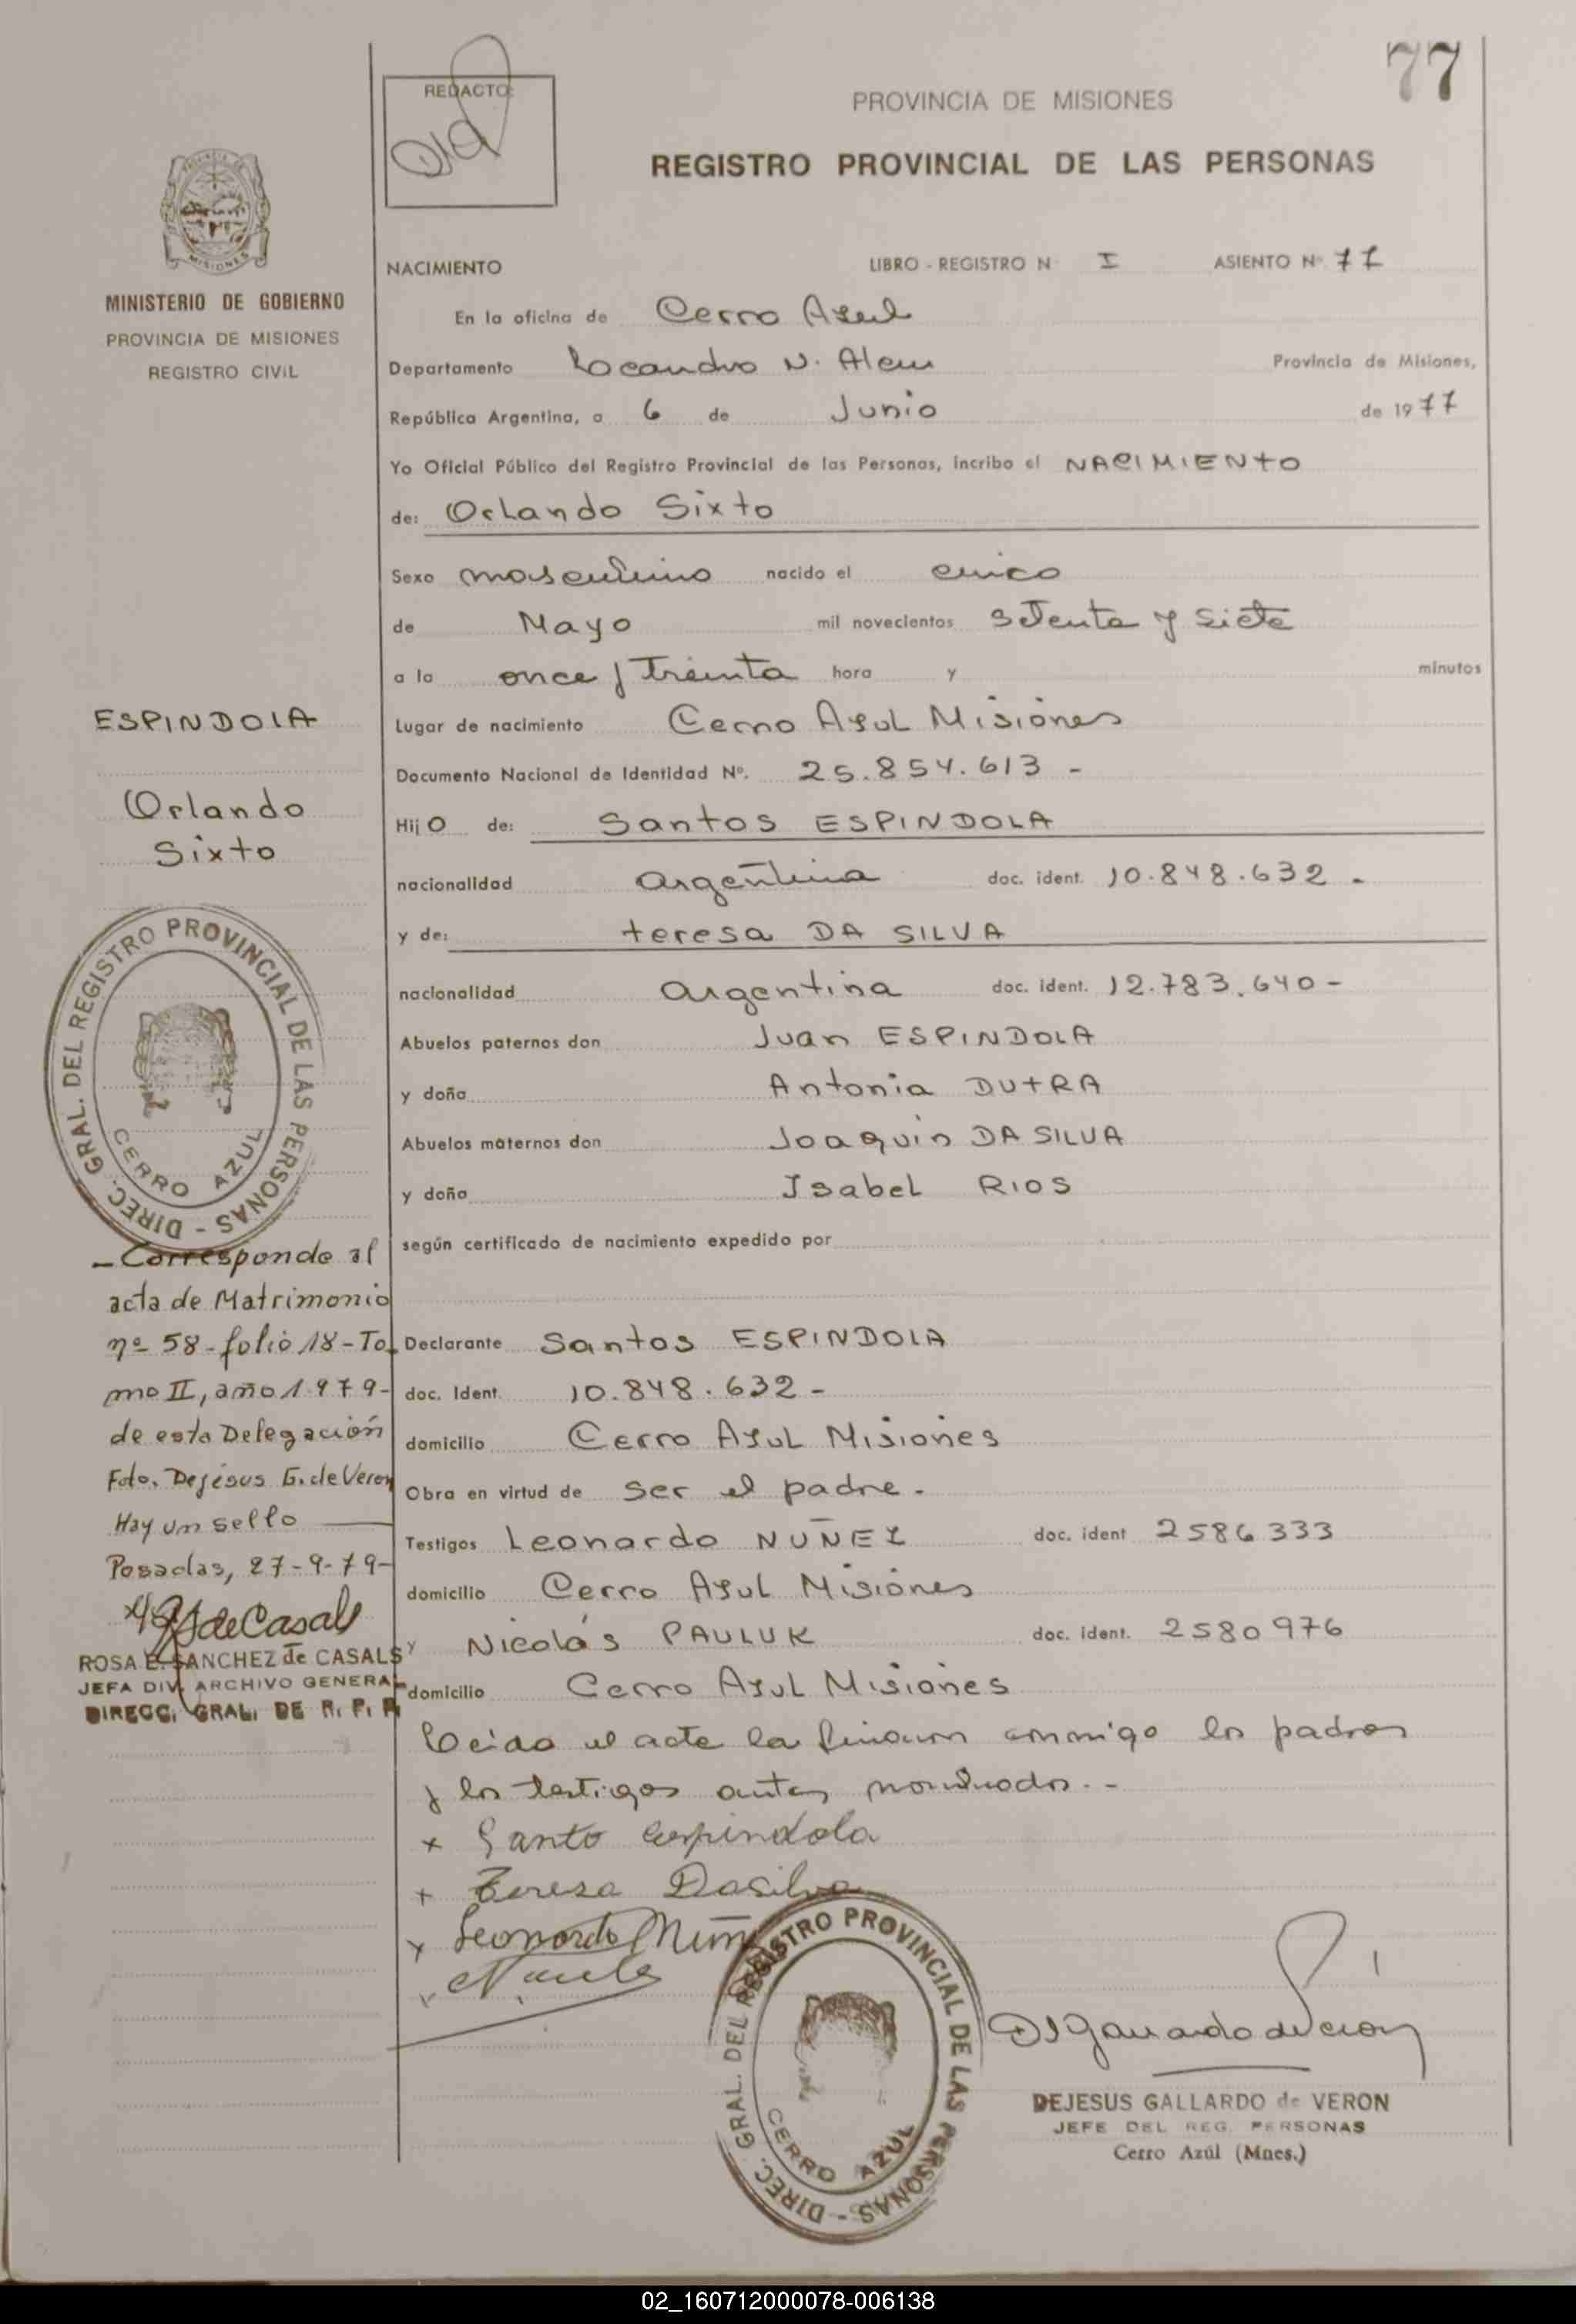 77
REDACTO:
PROVINCIA DE MISIONES
REGISTRO PROVINCIAL DE LAS PERSONAS
MISIONES
MINISTERIO DE GOBIERNO
PROVINCIA DE MISIONES
REGISTRO CIVIL
NACIMIENTO LIBRO - REGISTRO N I ASIENTO Nº 77
En la oficina de Cerro Azul
Departamento Leandro N. Alem Provincia de Misiones,
República Argentina, a 6 de Junio de 1977
Yo Oficial Público del Registro Provincial de las Personas, incribo el NACIMIENTO
de: Orlando Sixto
Sexo masculino nacido el cinco
de Mayo mil novecientos setenta y siete
a la once y treinta hora y minutos
Lugar de nacimiento Cerro Azul Misiones
Documento Nacional de Identidad Nº. 25.854.613 -
Hijo de: Santos ESPINDOLA
nacionalidad argentina doc. ident. 10.848.632 -
y de: teresa DA SILVA
nacionalidad argentina doc. ident. 12.783.640 -
Abuelos paternos don Juan ESPINDOLA
y doña Antonia DUTRA
Abuelos maternos don Joaquin DA SILVA
y doña Isabel RIOS
según certificado de nacimiento expedido por
Declarante Santos ESPINDOLA
doc. Ident. 10.848.632 -
domicilio Cerro Azul Misiones
Obra en virtud de ser el padre.
Testigos Leonardo NUÑEZ doc. ident 2586333
domicilio Cerro Azul Misiones
y Nicolás PAULUK doc. ident. 2580976
domicilio Cerro Azul Misiones
Leida el acta la firman conmigo los padres
y los testigos antes nombrados. -
x Santo Espindola
x Teresa Dasilva
x Leonardo Nuñ
ESPINDOLA
Orlando
Sixto
DIREC. GRAL. DEL REGISTRO PROVINCIAL DE LAS PERSONAS -
CERRO AZUL
- Corresponde al
acta de Matrimonio
nº 58 - folio 18 - To
mo II, año 1.979-
de esta Delegación
Fdo. Dejesus G. de Veron
Hay un sello
Posadas, 27-9-79-
de Casals
ROSA E. SANCHEZ de CASALS
JEFA DIV. ARCHIVO GENERAL
DIRECC. GRAL. DE R. P. P.
DIREC. GRAL. DEL REGISTRO PROVINCIAL DE LAS PERSONAS -
CERRO AZUL
D Gallardo de Veron
DEJESUS GALLARDO de VERON
JEFE DEL REG. PERSONAS
Cerro Azúl (Mnes.)
02_160712000078-006138